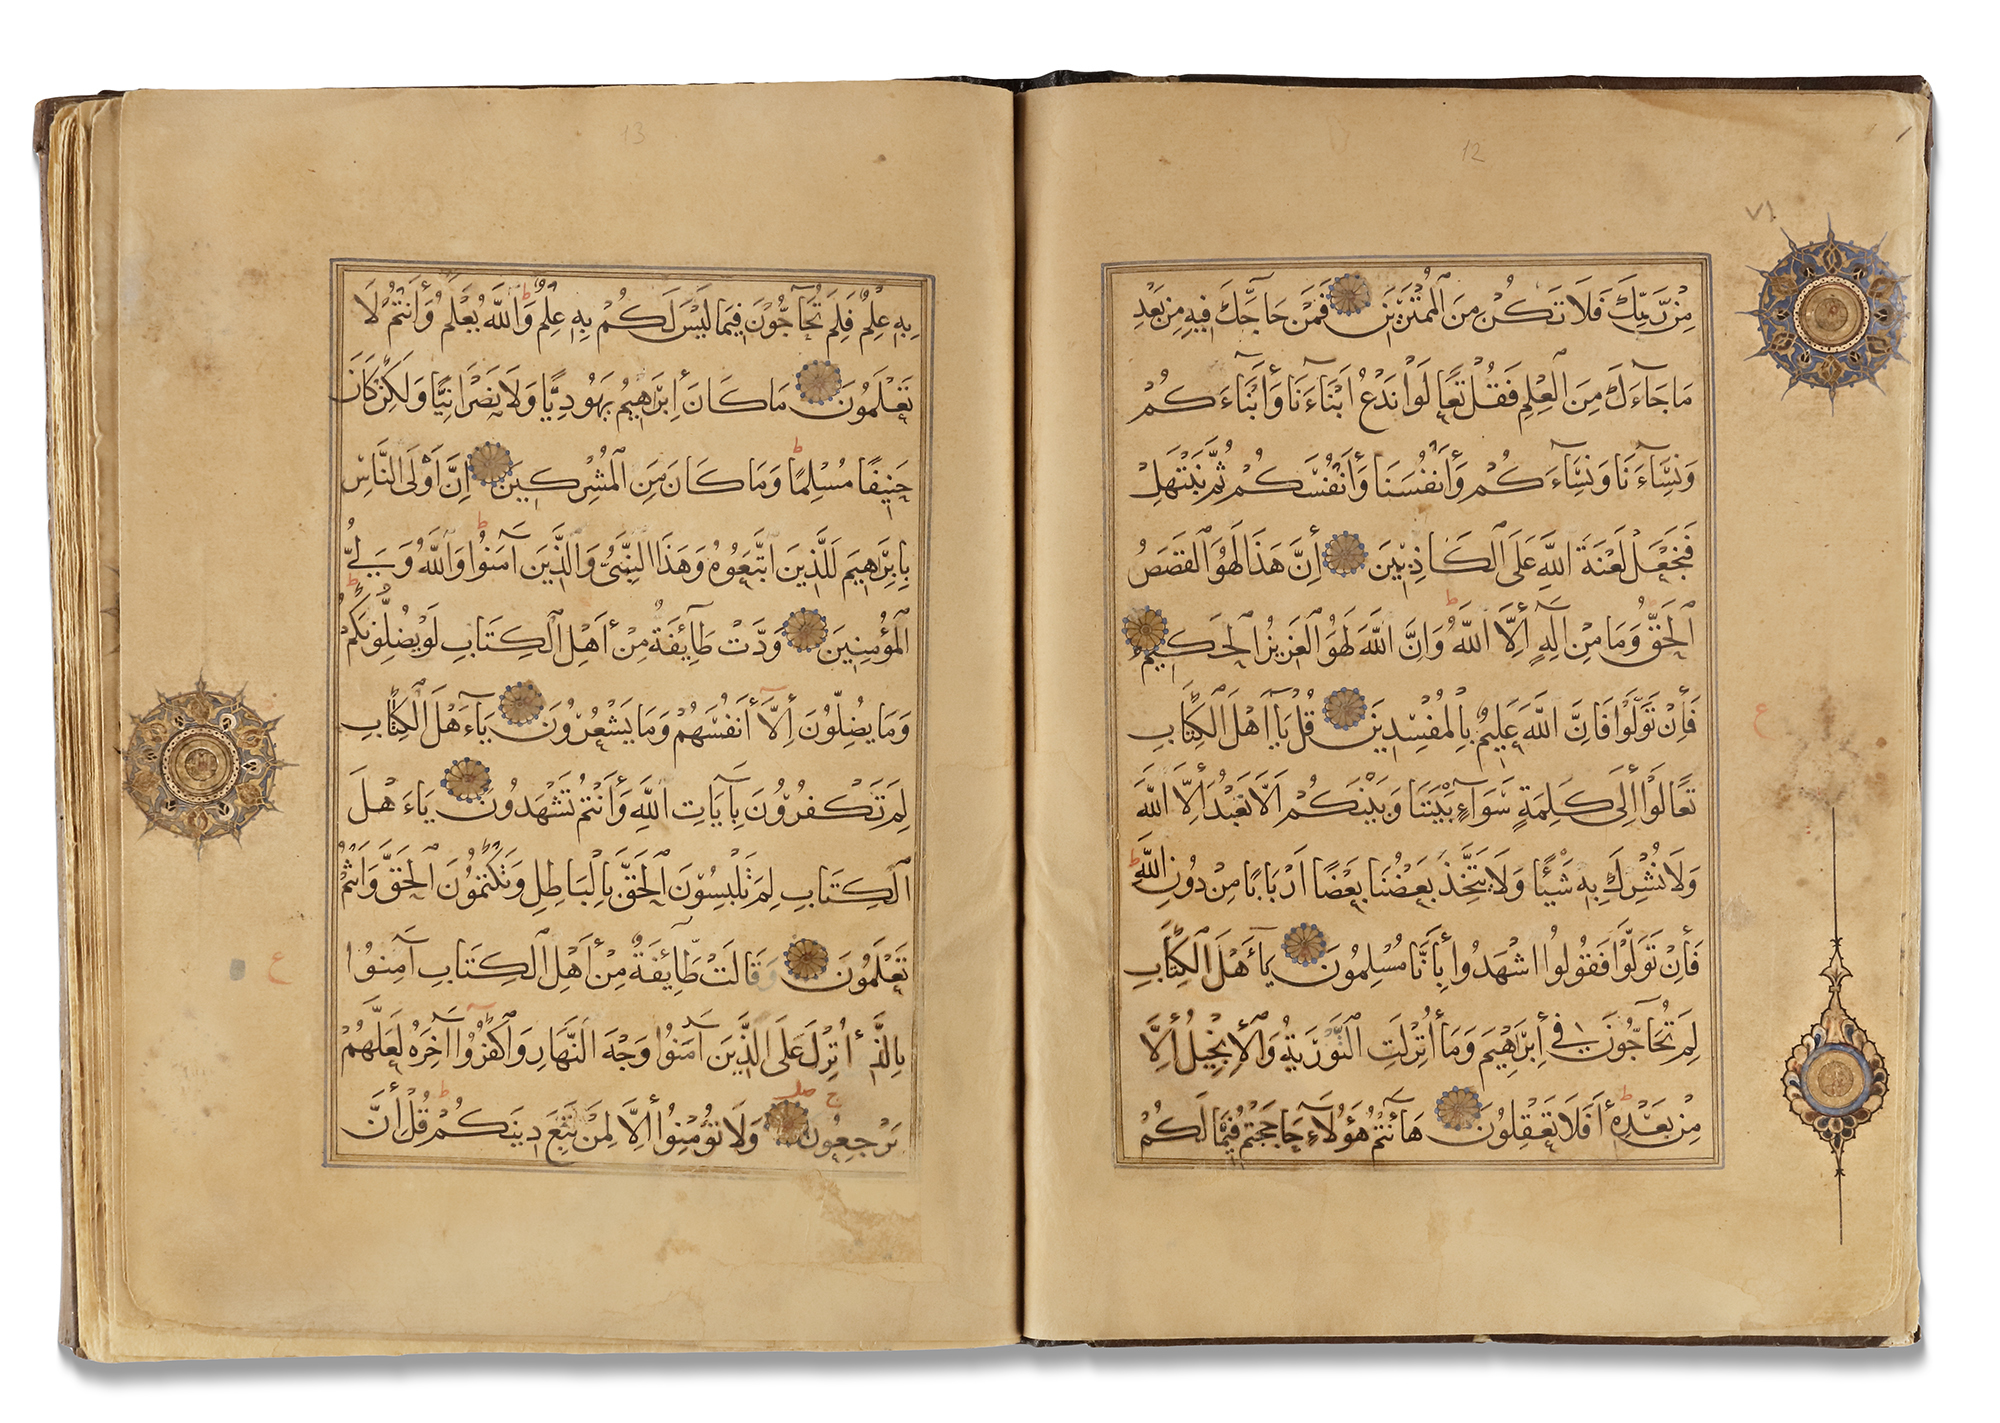 12
٧١
مِنْ رَبِّكَ فَلَا تَكُنْ مِنَ الْمُمْتَرِينَ فَمَنْ حَاجَّكَ فِيهِ مِنْ بَعْدِ
مَا جَآءَكَ مِنَ الْعِلْمِ فَقُلْ تَعَالَوْا نَدْعُ اَبْنَآءَنَا وَأَبْنَآءَكُمْ
وَنِسَآءَنَا وَنِسَآءَكُمْ وَأَنْفُسَنَا وَأَنْفُسَكُمْ ثُمَّ نَبْتَهِلْ
فَنَجْعَلْ لَعْنَةَ اللَّهِ عَلَى الْكَاذِبِينَ إِنَّ هَذَا لَهُوَ الْقَصَصُ
الْحَقُّ وَمَا مِنْ اِلَهٍ إِلَّا اللَّهُ وَإِنَّ اللَّهَ لَهُوَ الْعَزِيزُ الْحَكِيمُ
فَإِنْ تَوَلَّوْا فَاِنَّ اللَّهَ عَلِيمٌ بِالْمُفْسِدِينَ قُلْ يَآ اَهْلَ الْكِتَابِ
تَعَالَوْا إِلَى كَلِمَةٍ سَوَآءٍ بَيْنَنَا وَبَيْنَكُمْ اَلَّا نَعْبُدَ إِلَّا اللَّهَ
وَلَا نُشْرِكَ بِهِ شَيْئًا وَلَا يَتَّخِذَ بَعْضُنَا بَعْضًا اَرْبَابًا مِنْ دُونِ اللَّهِ
فَإِنْ تَوَلَّوْا فَقُولُوا اشْهَدُوا بِأَنَّا مُسْلِمُونَ يَآءَهْلَ الْكِتَابِ
لِمَ تُحَآجُّونَ فِي إِبْرَاهِيمَ وَمَا أُنْزِلَتِ التَّوْرَيةُ وَالْإِنْجِيلُ إِلَّا
مِنْ بَعْدِهِ أَفَلَا تَعْقِلُونَ هَآ أَنْتُمْ هَؤُلَآءِ حَاجَجْتُمْ فِيمَا لَكُمْ
ع
13
بِهِ عِلْمٌ فَلِمَ تُحَآجُّونَ فِيمَا لَيْسَ لَكُمْ بِهِ عِلْمٌ وَاللَّهُ يَعْلَمُ وَأَنْتُمْ لَا
تَعْلَمُونَ مَا كَانَ إِبْرَاهِيمُ يَهُودِيًّا وَلَا نَصْرَانِيًّا وَلَكِنْ كَانَ
حَنِيفًا مُسْلِمًا وَمَا كَانَ مِنَ الْمُشْرِكِينَ إِنَّ أَوْلَى النَّاسِ
بِإِبْرَاهِيمَ لَلَّذِينَ اتَّبَعُوهُ وَهَذَا النَّبِيُّ وَالَّذِينَ آمَنُوا وَاللَّهُ وَلِيُّ
الْمُؤْمِنِينَ وَدَّتْ طَآئِفَةٌ مِنْ أَهْلِ الْكِتَابِ لَوْ يُضِلُّونَكُمْ
وَمَا يُضِلُّونَ إِلَّا أَنْفُسَهُمْ وَمَا يَشْعُرُونَ يَآءَهْلَ الْكِتَابِ
لِمَ تَكْفُرُونَ بِآيَاتِ اللَّهِ وَأَنْتُمْ تَشْهَدُونَ يَآءَهْلَ
الْكِتَابِ لِمَ تَلْبِسُونَ الْحَقَّ بِالْبَاطِلِ وَتَكْتُمُونَ الْحَقَّ وَأَنْتُمْ
تَعْلَمُونَ وَقَالَتْ طَآئِفَةٌ مِنْ أَهْلِ الْكِتَابِ آمِنُوا
بِالَّذِي أُنْزِلَ عَلَى الَّذِينَ آمَنُوا وَجْهَ النَّهَارِ وَاكْفُرُوا آخِرَهُ لَعَلَّهُمْ
يَرْجِعُونَ وَلَا تُؤْمِنُوا إِلَّا لِمَنْ تَبِعَ دِينَكُمْ قُلْ إِنَّ
ع